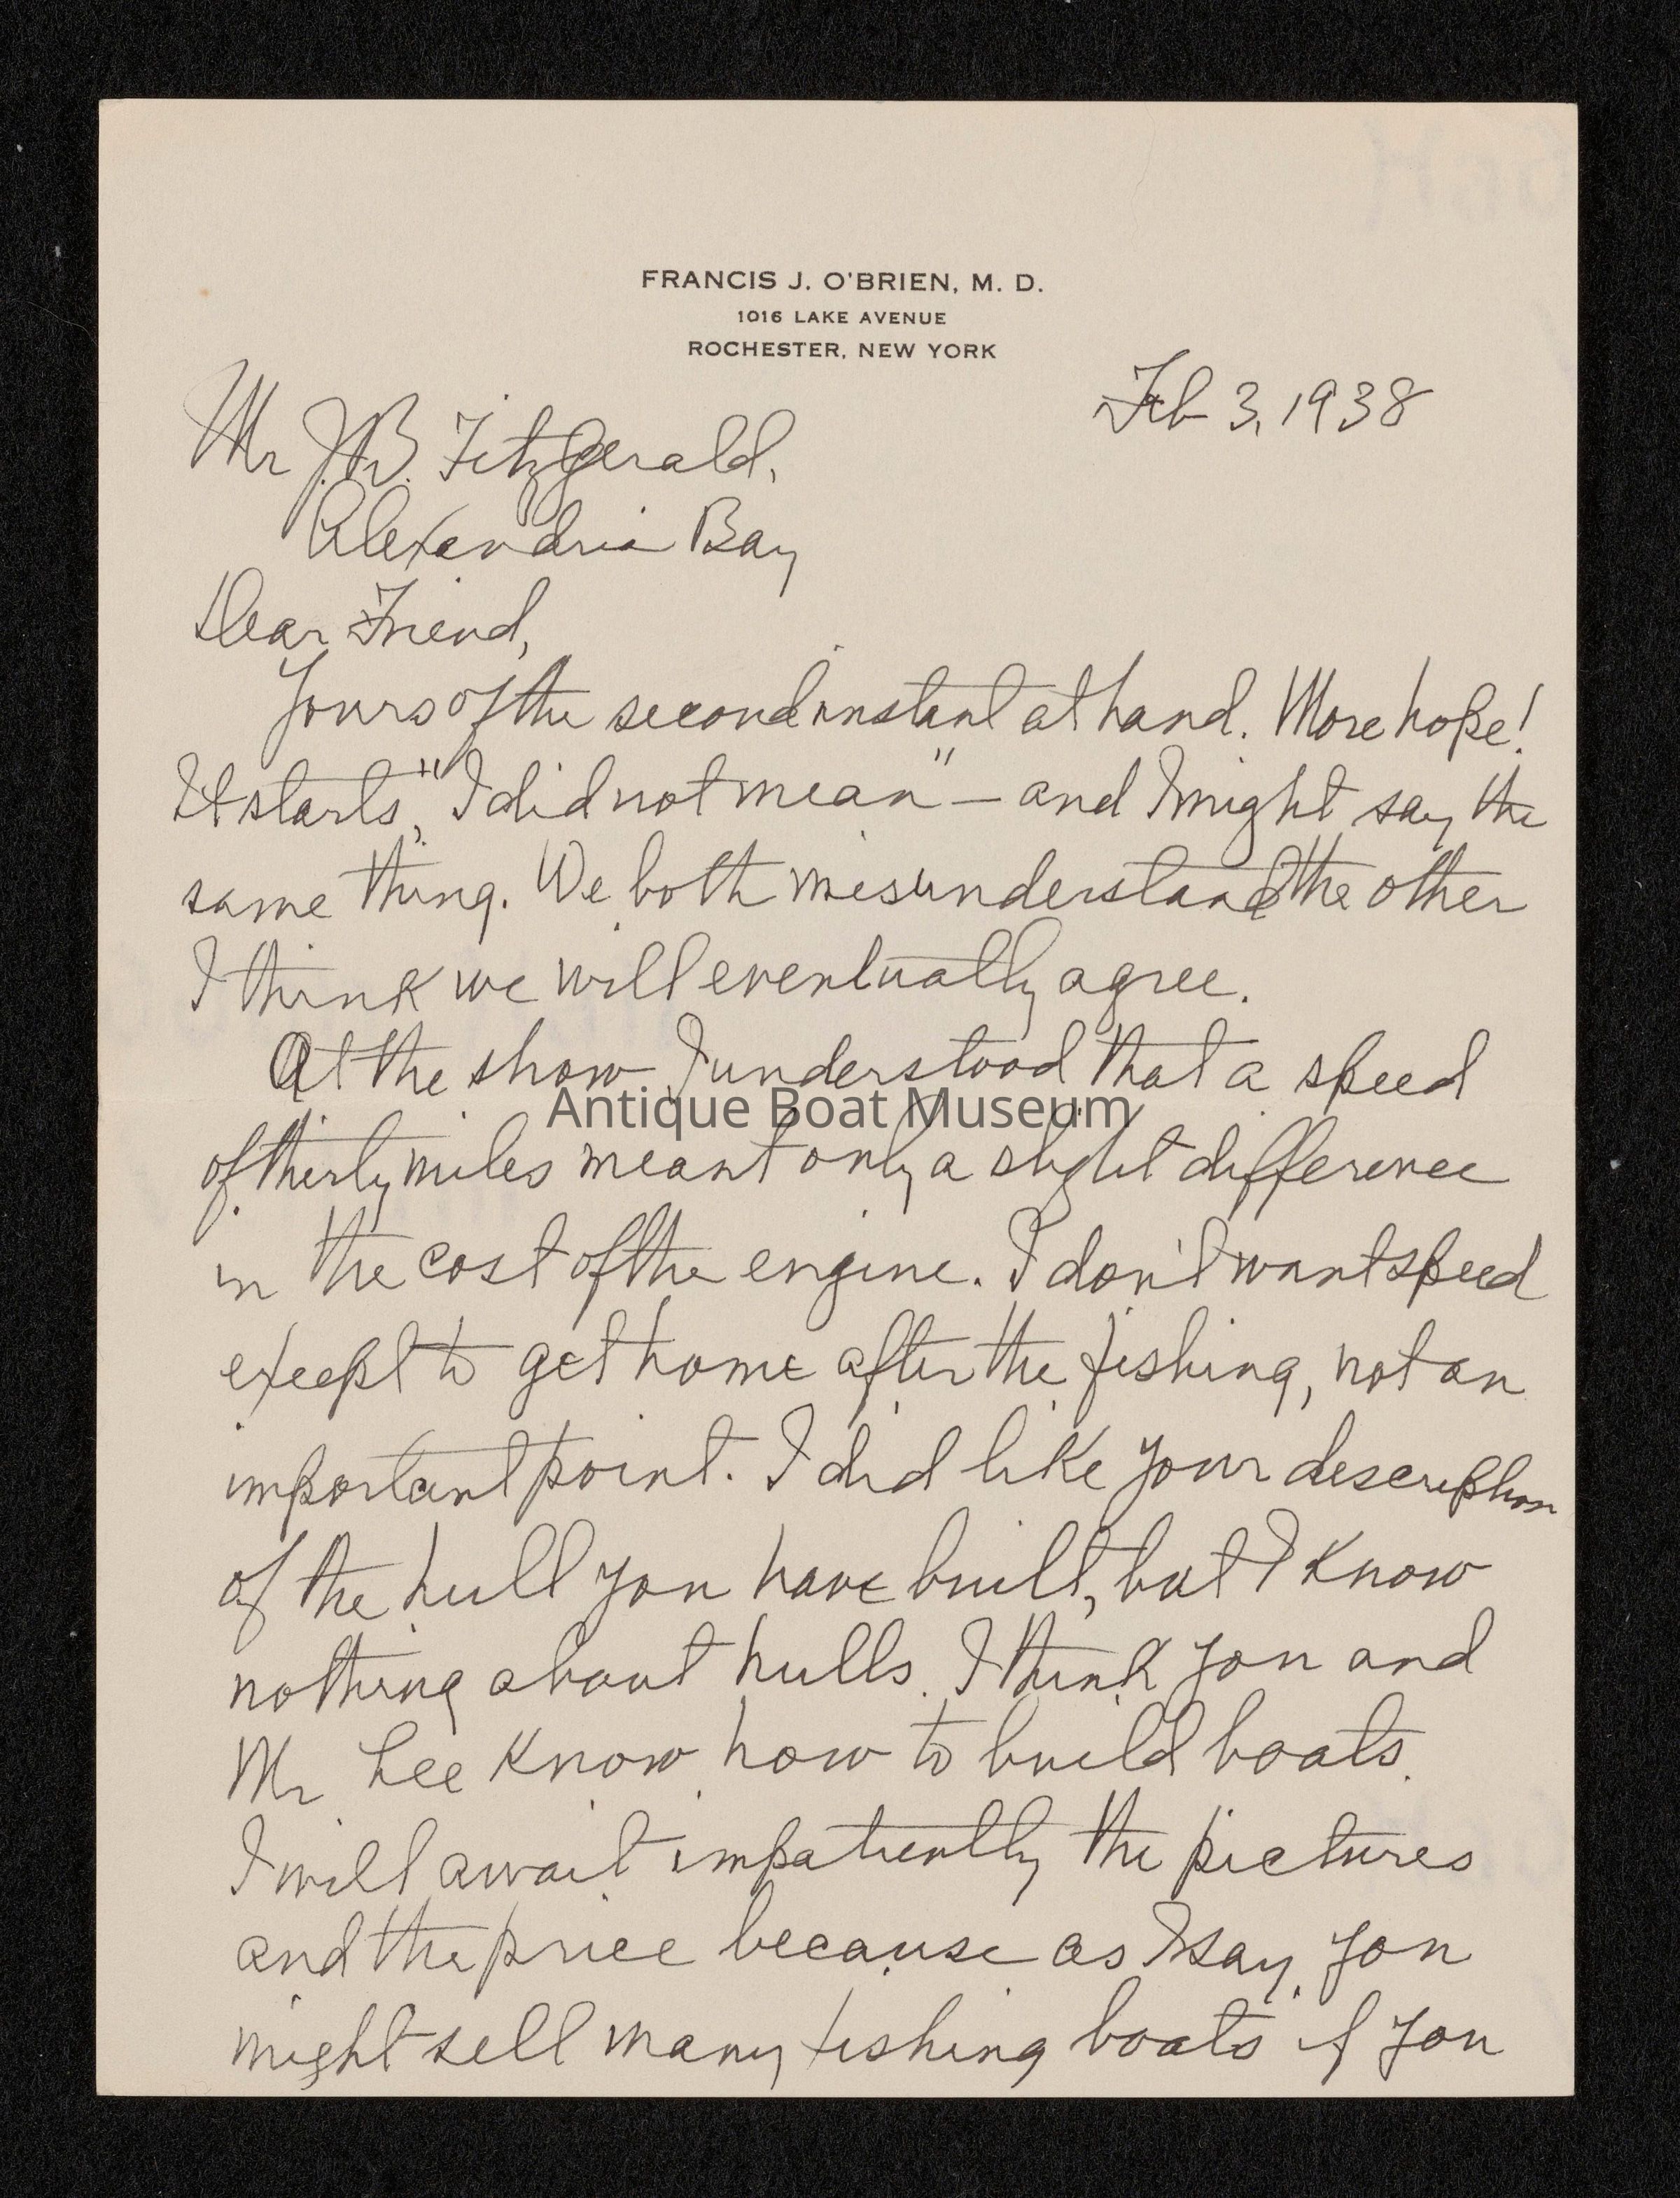 FRANCIS J. O'BRIEN, M. D.
1016 LAKE AVENUE
ROCHESTER, NEW YORK
Feb 3, 1938
Mr J.W. Fitzgerald,
Alexandria Bay
Dear Friend,
Yours of the second instant at hand. More hope!
It starts, "I did not mean" — and I might say the
same thing. We both misunderstand the other
I think we will eventually agree.
At the show I understood that a speed
Antique Boat Museum
of thirty miles meant only a slight difference
in the cost of the engine. I don't want speed
except to get home after the fishing, not an
important point. I did like your description
of the hull you have built, but I know
nothing about hulls. I think you and
Mr Lee know how to build boats.
I will await impatiently the pictures
and the price because as I say, you
might sell many fishing boats if you